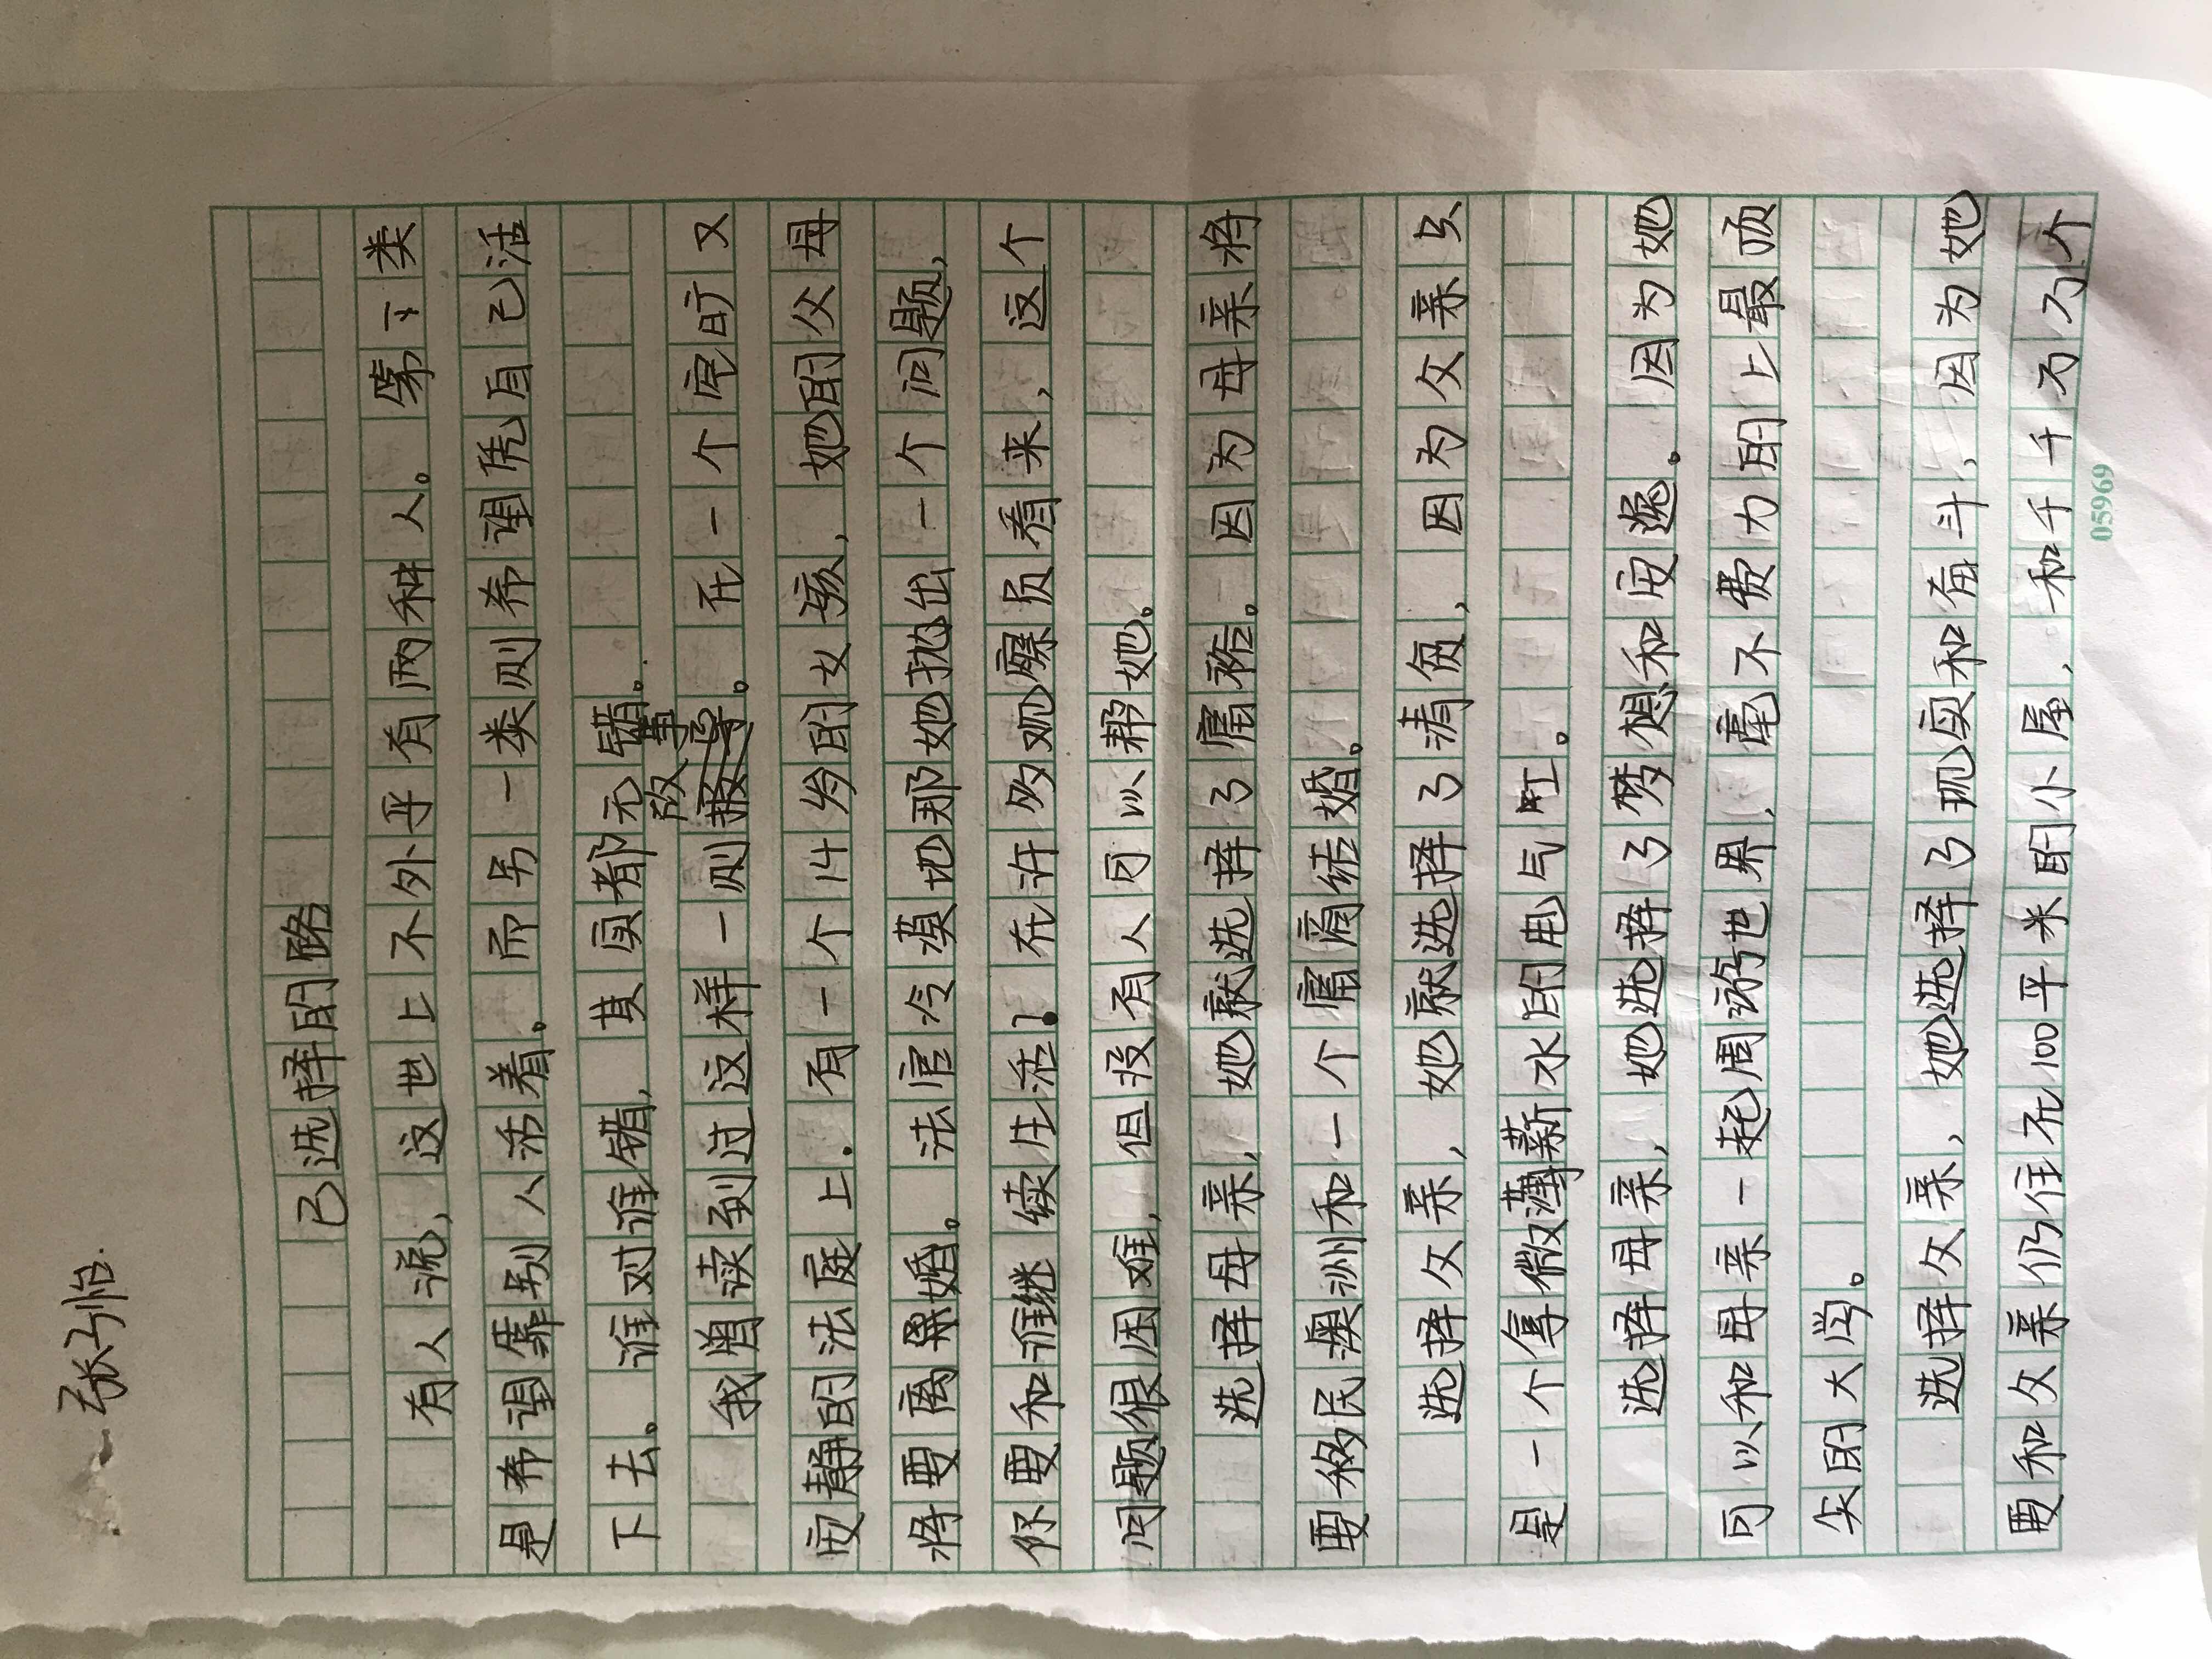 张子怡
已选择的路
有人说，这世上不外乎有两种人。第一类
是希望靠别人活着。而另一类则希望凭自己活
下去。谁对谁错，其实都无错。
我曾读到过这样一则故事。在一个空旷又
安静的法庭上.有一个14岁的女孩，她的父母
将要离异婚。法官冷漠地那她抛出一个问题，
你要和谁继续生活？在许多观察员看来，这个
问题很困难，但没有人可以帮她。
选择母亲，她就选择了富裕。因为母亲将
要移民澳洲和一个富商结婚。
选择父亲，她就选择了清贫，因为父亲只
是一个拿微薄薪水的电气工。
选择母亲，她选择了梦想和安逸。因为她
可以和母亲一起周游世界，毫不费力的上最顶
尖的大学。
选择父亲，她选择了现实和奋斗，因为她
要和父亲仍住在100平米的小屋，和千千万万个
05969